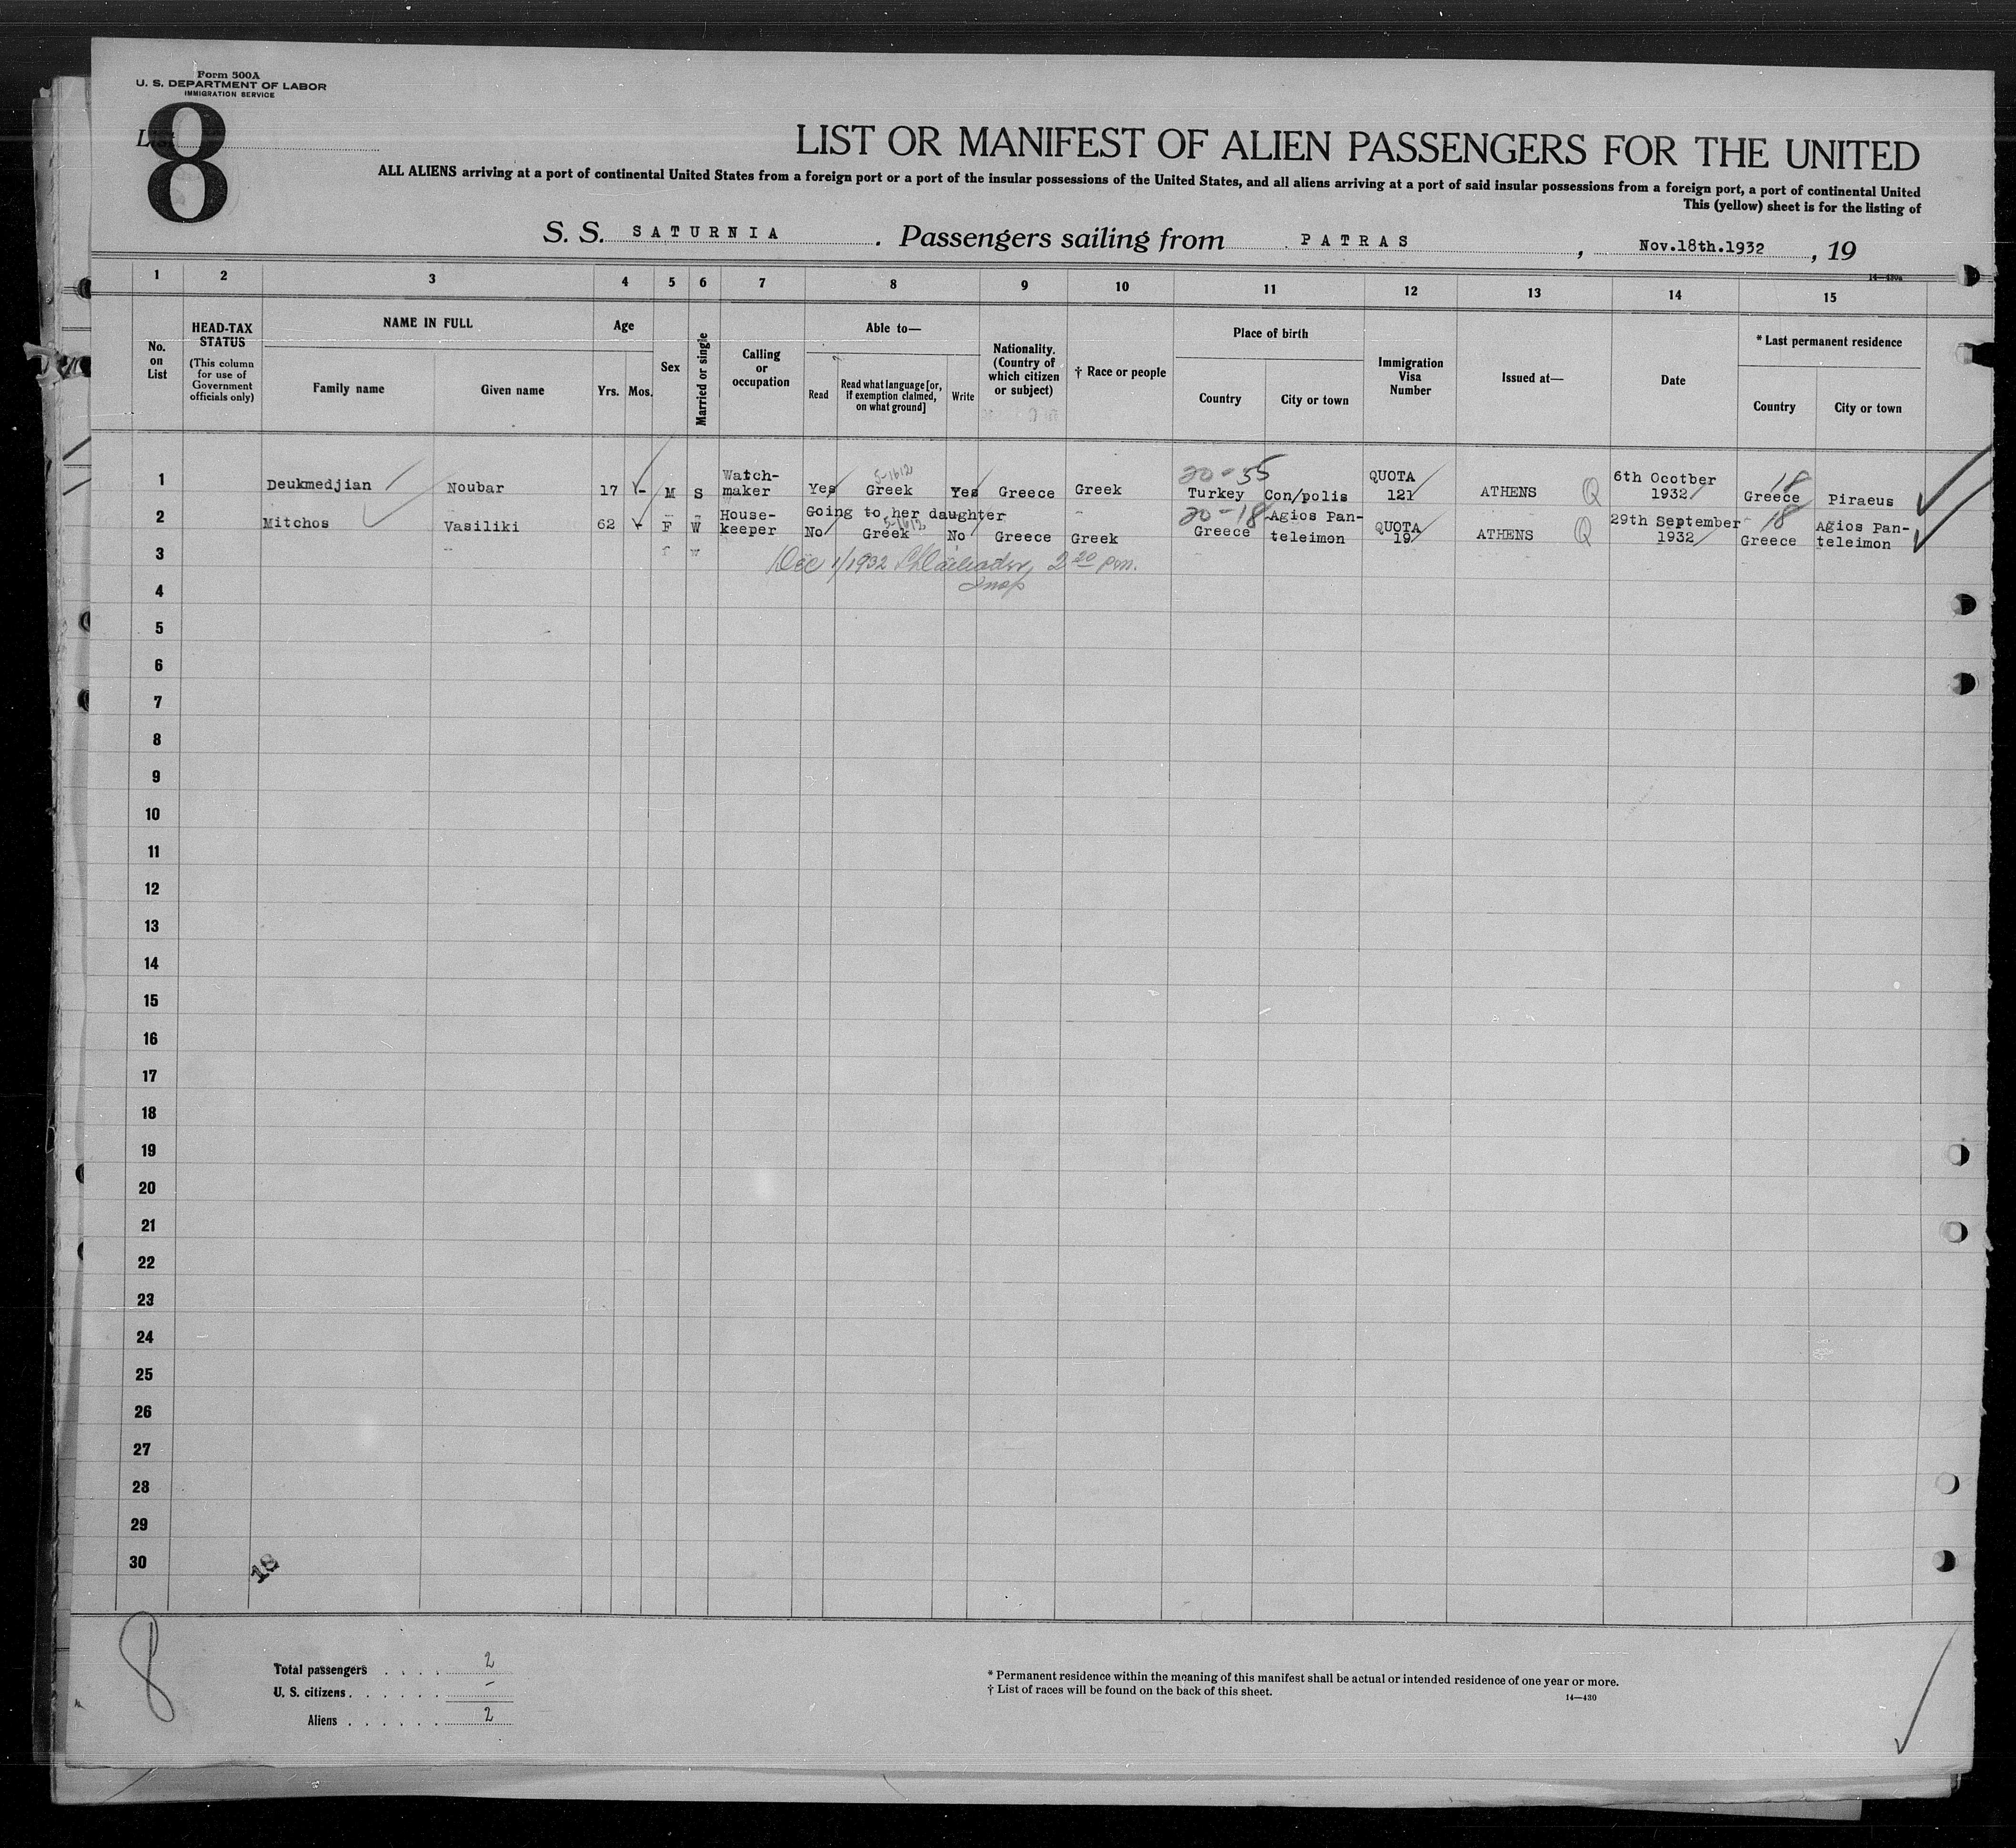 Form 500A
U. S. DEPARTMENT OF LABOR
IMMIGRATION SERVICE
List 8
LIST OR MANIFEST OF ALIEN PASSENGERS FOR THE UNITED
ALL ALIENS arriving at a port of continental United States from a foreign port or a port of the insular possessions of the United States, and all aliens arriving at a port of said insular possessions from a foreign port, a port of continental United
This (yellow) sheet is for the listing of
S. S. SATURNIA . Passengers sailing from PATRAS , Nov.18th.1932 , 19
14—430a
1 2 3 4 5 6 7 8 9 10 11 12 13 14 15
No. on List
HEAD-TAX STATUS
(This column for use of Government officials only)
NAME IN FULL
Family name Given name
Age
Yrs. Mos.
Sex
Married or single
Calling or occupation
Able to—
Read Read what language [or, if exemption claimed, on what ground] Write
Nationality. (Country of which citizen or subject)
† Race or people
Place of birth
Country City or town
Immigration Visa Number
Issued at—
Date
* Last permanent residence
Country City or town
1 Deukmedjian Noubar 17 - M S Watch-maker Yes 5-1612 Greek Yes Greece Greek 20-55 Turkey Con/polis QUOTA 121 ATHENS Q 6th Ocotber 1932 18 Greece Piraeus
2 Mitchos Vasiliki 62 - F W House-keeper Going to her daughter No 5-1612 Greek No Greece Greek 20-18 Greece Agios Pan-teleimon QUOTA 19 ATHENS Q 29th September 1932 18 Greece Agios Pan-teleimon
3 f w
Dec 1/1932 2 20 pm.
Insp
4
5
6
7
8
9
10
11
12
13
14
15
16
17
18
19
20
21
22
23
24
25
26
27
28
29
30
18
8
Total passengers . . . . 2
U. S. citizens . . . . . . -
Aliens . . . . . . 2
* Permanent residence within the meaning of this manifest shall be actual or intended residence of one year or more.
† List of races will be found on the back of this sheet.
14—430